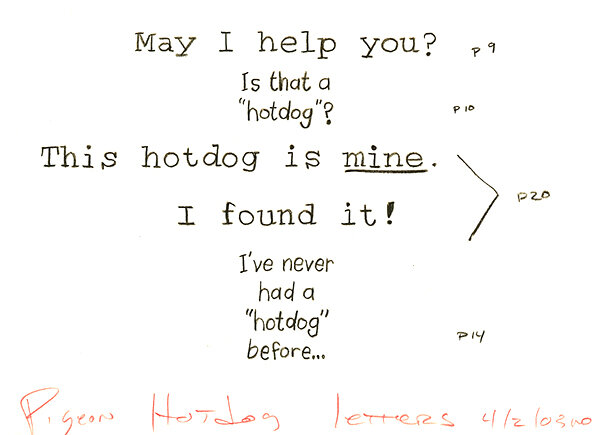 May I help you? p 9
Is that a
"hotdog"? p 10
This hotdog is mine.
p20
I found it!
I've never
had a
"hotdog"
before... p14
Pigeon Hotdog letters 4/2/03